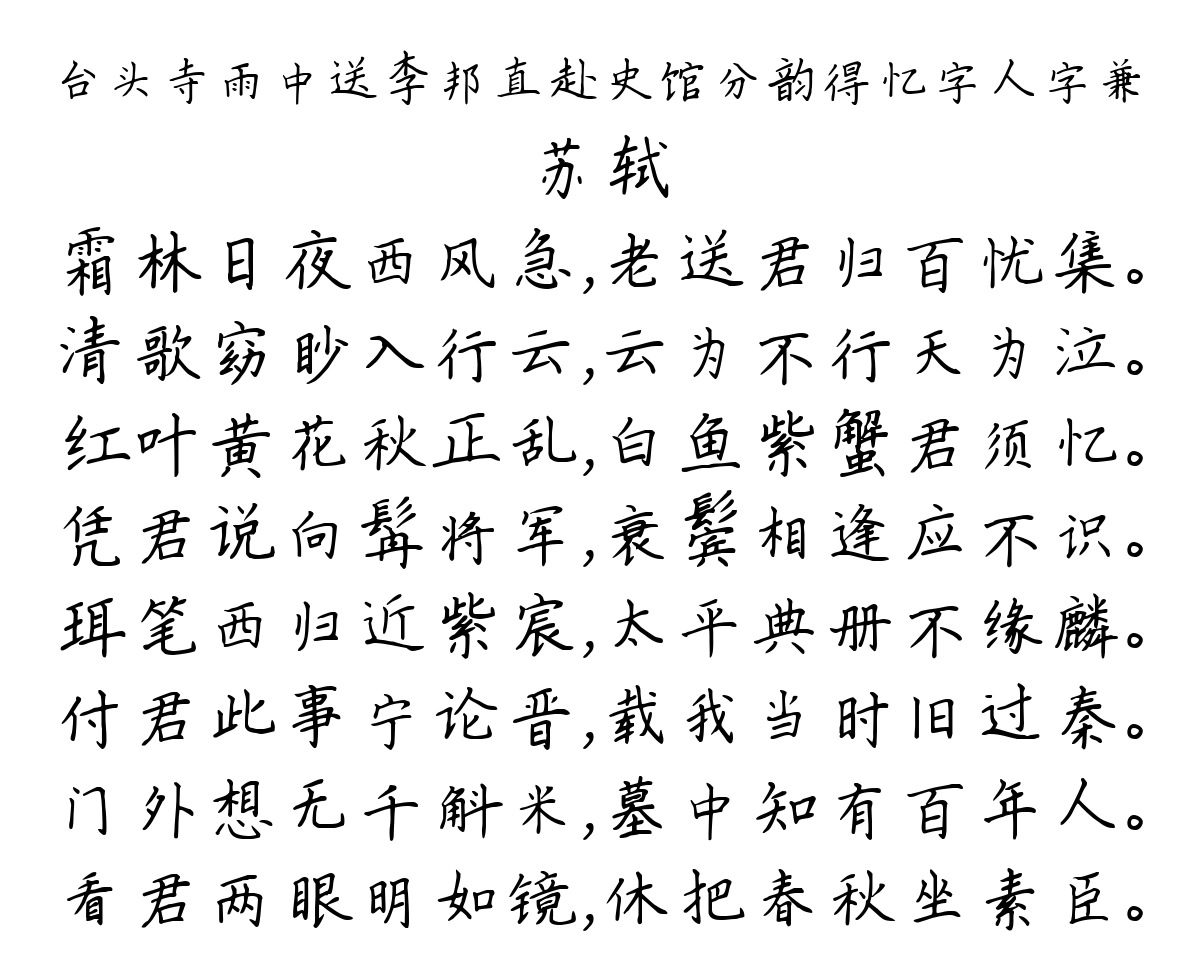 台头寺雨中送李邦直赴史馆分韵得忆字人字兼
苏轼
霜林日夜西风急,老送君归百忧集。
清歌窈眇入行云,云为不行天为泣。
红叶黄花秋正乱,白鱼紫蟹君须忆。
凭君说向髯将军,衰鬓相逢应不识。
珥笔西归近紫宸,太平典册不缘麟。
付君此事宁论晋,载我当时旧过秦。
门外想无千斛米,墓中知有百年人。
看君两眼明如镜,休把春秋坐素臣。